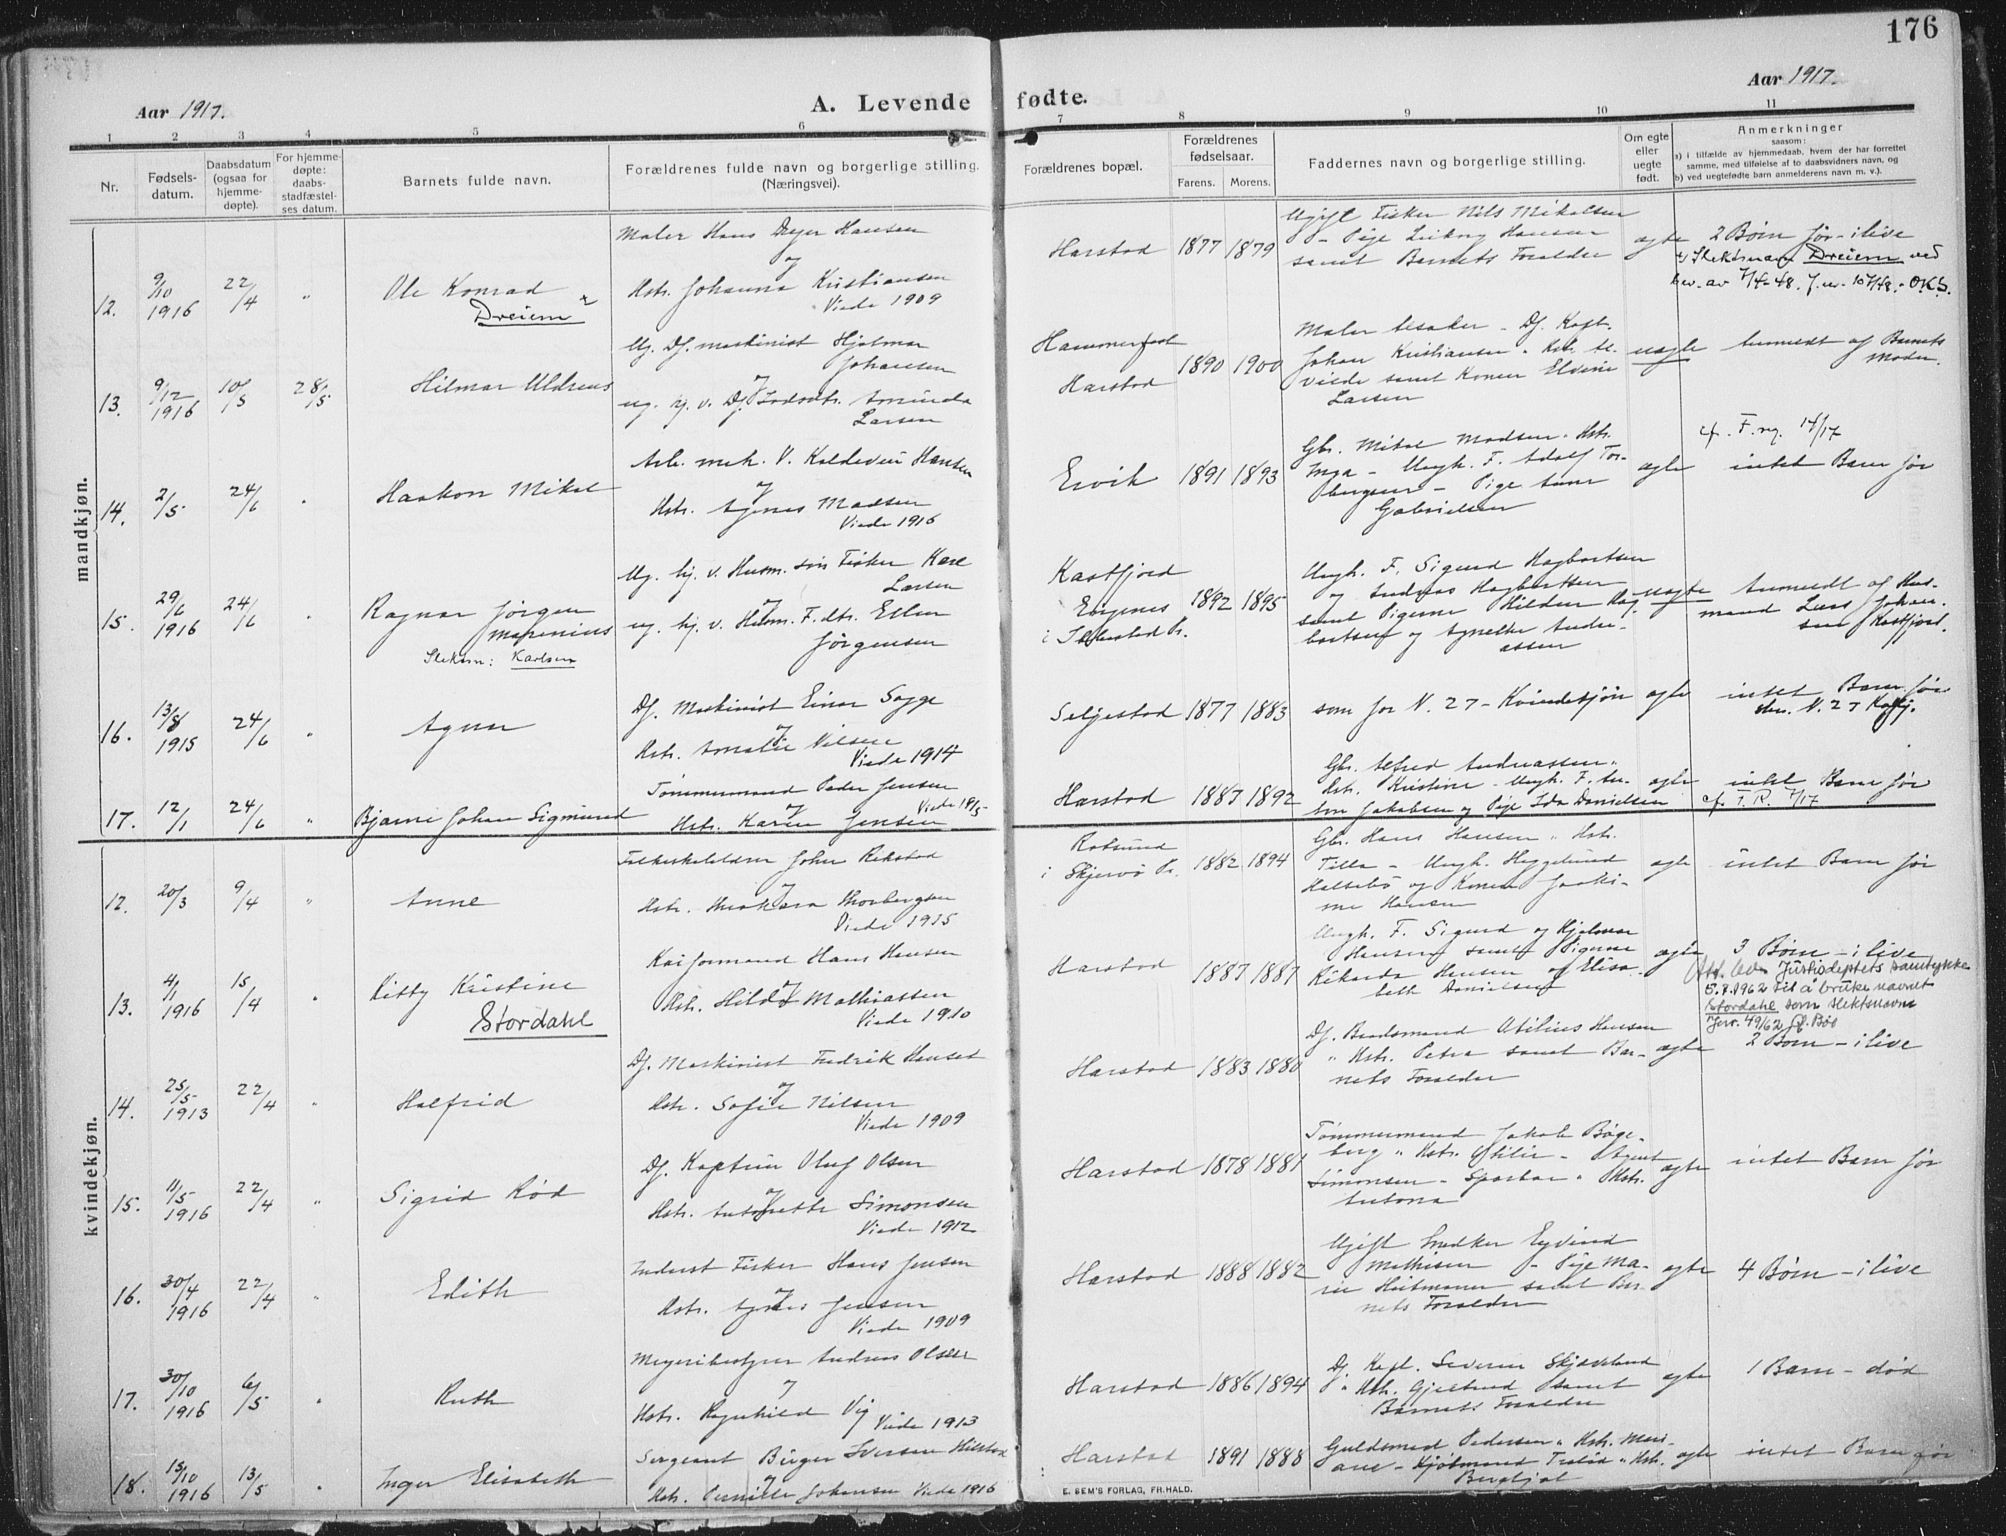 176
Aar 1917.
A. Levende fødte.
Aar 1917.
1 2 3 4 5 6 7 8 9 10 11
Nr.
Fødsels-
datum.
Daabsdatum
(ogsaa for
hjemme-
døpte).
For hjemme-
døpte:
daabs-
stadfæstel-
ses datum.
Barnets fulde navn.
Forældrenes fulde navn og borgerlige stilling.
(Næringsvei).
Forældrenes bopæl.
Forældrenes
fødselsaar.
Farens. Morens.
Faddernes navn og borgerlige stilling.
Om egte
eller
uegte
født.
Anmerkninger
saasom:
a) i tilfælde av hjemmedaab, hvem der har forrettet
samme, med tilføielse af to daabsvidners navn, og
b) ved uegtefødte barn anmelderens navn m. v.).
mandkjøn.
12.
9/10
1916
22/4
"
Ole Konrad
Dreiem
Maler Hans Dreyer Hansen
og
Hstr. Johanna Kristiansen
Viede 1909
Harstad
1877 1879
Ugift Fisker Nils Mikalsen
samt Barnets Foraldre
agte
2 Børn før - ilive
Slektsnavn Dreiem ved
bev. av 7/4-48. J.nr. 107/48. - O.K.S.
13.
9/12
1916
10/5
28/5
Hilmar Uldreus
Ug. Df. maskinist Hjalmar
Johansen
og
Larsen
Hammerfest
Harstad
1890 1900
Johan Kristiansen
viede samt Konen Elvine
Larsen
uagte
anmeldt af Barnets
Moder.
14.
2/5
24/6
"
Haakon Mikal
Arb. mek. V. Kaldevei Hansen
og
Hstr. Agnes Madsen
Viede 1916
Ervik
1891 1893
Gbr. Mikal Madsen " Hstr.
Inga - Ungk. F. Adolf Tor-
bergsen - Pige Anne
Gabrielsen
agte
cf. F.rg. 14/17
intet Barn før
15.
29/6
1916
24/6
"
Ragnar Jørgen
Marenius
Slektsn: Karlsen
Ug. hj. v. Husm. søn Fisker Karl
Larsen
og
ug. hj. v. Husm. F. dtr. Ellen
Jørgensen
Kastfjord
Evgenes
1892 1895
Ungk. F. Sigurd Hagbartsen
og Andreas Hagbartsen
samt Pigerne Hilda Hag-
bartsen og Agnethe Andre-
assen
uagte
Anmeldt af Hus-
mand Lars Johan-
sen Kastfjord.
16.
13/8
1915
24/6
"
Agnar
Df. Maskinist Einar Sagge
og
Hstr. Amalie Nilsen
Viede 1914
Seljestad
1877 1883
som for N. 27 - Kvindekjøn
agte
intet Barn før
N. 27 Kvkj.
17.
12/1
24/6
"
Bjarne Johan Sigmund
Tømmermand Peder Jensen
og
Hstr. Karen Jensen
Harstad
1887 1892
Gbr. Alfred Andreassen "
Hstr. Kristine - Ungk. F. An-
ton Jakobsen og Pige Ida Danielsen
agte
intet Barn før
cf. T. R. 7/17
kvindekjøn.
12.
20/3
9/4
"
Anne
Folkeskolelærer Johan Rekstad
og
Hstr. Thorbergsen
Viede 1915
Rotsund
i Skjervø Pr.
1882 1894
Gbr. Hans Hansen " Hstr.
Tilla - Ungk. Heggelund
og Konen Joaki-
me Hansen
agte
intet Barn før
13.
4/1
1916
15/4
"
Kitty Kristine
Stordahl
Kaiformand Hans Hansen
og
Hstr. Hilda Mathiassen
Viede 1910
Harstad
1887 1887
Ungk. F. Sigurd og Hjalmar
Hansen samt Pigerne
Rikarda Hansen og Elisa-
beth Danielsen
agte
3 Børn - ilive
Justisdeptets samtykke
5.9.1962 til å bruke navnet
Stordahl som slektsnavn
Jnr. 49/62
14.
25/5
1913
22/4
"
Halfrid
Df. Maskinist Fredrik Hansen
og
Hstr. Sofie Nilsen
Viede 1909
Harstad
1883 1880
Df. Brodsmand Otilius Hansen
" Hstr. Petra samt Bar-
nets Foraldre
agte
2 Børn - ilive
15.
11/5
1916
22/4
"
Sigrid Rød
Df. Kaptein Oluf Olsen
og
Hstr. Antonette Simonsen
Viede 1912
Harstad
1878 1881
Tømmermand Jakob Bøge-
berg " Hstr. Otilie - Agent
Simonsen - " Hstr.
Antona
agte
intet Barn før
16.
30/4
1916
22/4
"
Edith
Inderst Fisker Hans Jensen
og
Hstr. Agnes Jensen
Viede 1909
Harstad
1888 1882
Ugift Snedker Eyvind
Mathisen - Pige Ma-
rie Heitmann samt Bar-
nets Foraldre
agte
4 Børn - ilive
17.
30/10
1916
6/5
"
Ruth
Meieribestyrer Andreas Olsen
og
Hstr. Ragnhild Vig
Viede 1913
Harstad
1886 1894
Df. Kapt. Severin Skjæveland
" Hstr. Gjertrud samt
Barnets Foraldre
agte
1 Barn - død
18.
15/10
1916
13/5
"
Inger Elisabeth
Sergeant Birger Iversen Hilstad
og
Hstr. Pernille Johansen Viede 1916
Harstad
1891 1888
Guldsmed Pedersen " Hstr. Mari-
ane - Kjøbmand " Hstr.
Bergljot
agte
intet Barn før
E. SEM'S FORLAG, FR.HALD.